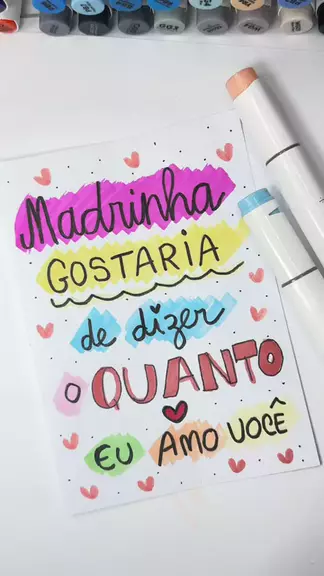 Madrinha
GOSTARIA
de dizer
O QUANTO
EU AMO VOCÊ